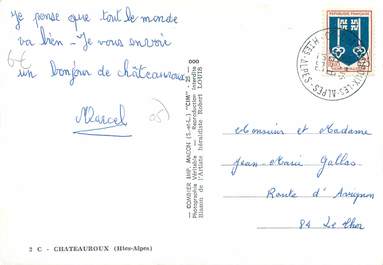 je pense que tout le monde
va bien - Je vous envoi
un bonjour de châteauroux
Marcel
6€
05
000
COMBIER IMP. MACON (S.-et-L.) "CIM" - 25 -
Photographie Véritable - Reproduction Interdite
Blason de l'Artiste héraldiste Robert LOUIS
REPUBLIQUE FRANÇAISE
HTES-ALPES
Monsieur et Madame
Jean-Marie Gallas
Route d'Avignon
84 Le Thor
2 C - CHATEAUROUX (Htes-Alpes)